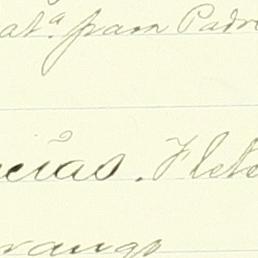 at.ª para Padr
ecias. Flete
rango